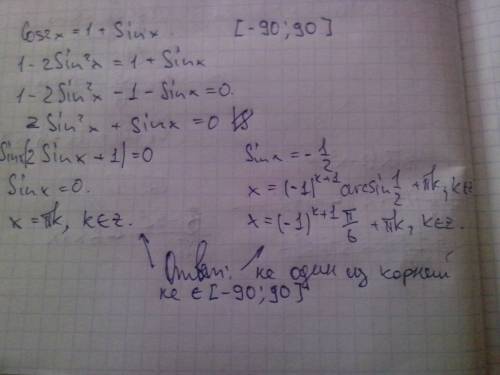 Cos2x = 1 + Sinx. [-90; 90]
1 - 2Sin²x = 1 + Sinx
1 - 2Sin²x - 1 - Sinx = 0.
2Sin²x + Sinx = 0
Sinx(2Sinx + 1) = 0
Sinx = -1/2
Sinx = 0.
x = (-1)^(k+1) arcsin 1/2 + πk, k∈z
x = πk, k∈z.
x = (-1)^(k+1) π/6 + πk, k∈z.
Ответ: не один из корней
не ∈ [-90; 90]